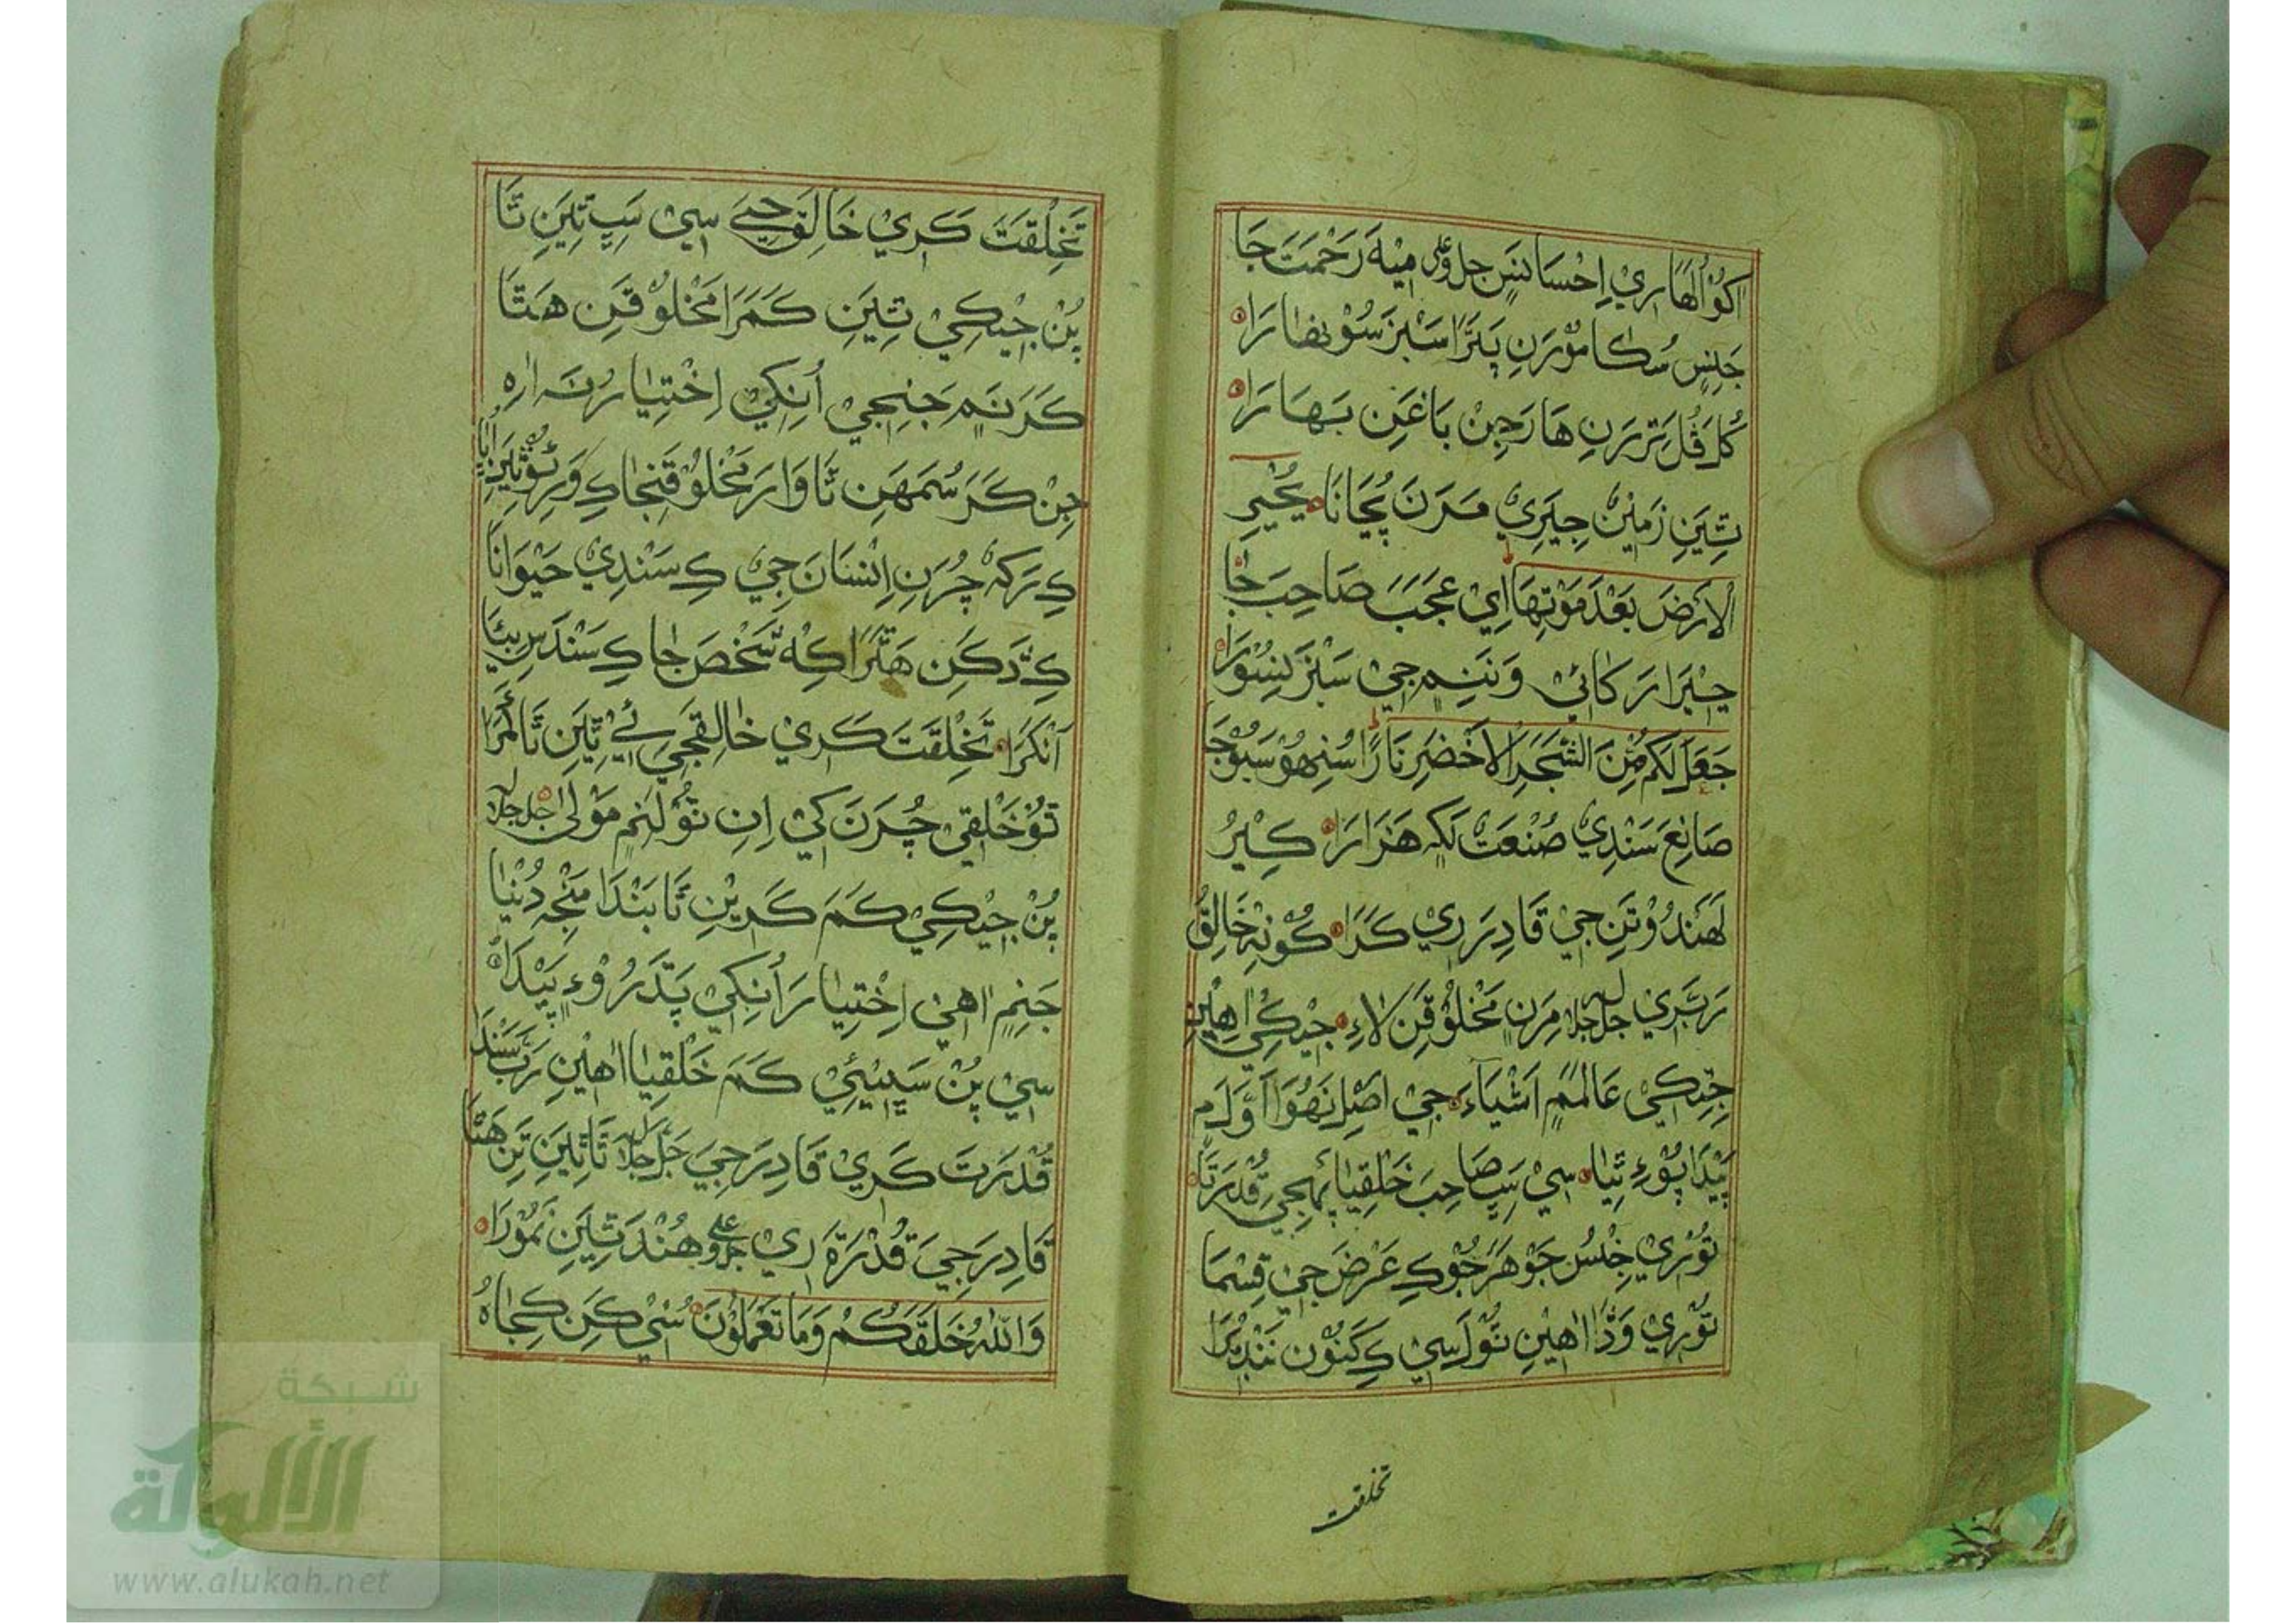 اَکُوْ اُلْهَاري اِحْسَانَسٖ جل وعلى مِيْهَ رَحْمَتَ جَا
جَنِسٖ سُڪَا مُوْرَنِ پَتَرَا سَبْزَ سُوْنهَارَا
گُلَ ڦُلَ تَرَرَنِ هَارَجِنْ بَاغَنِ بَهَارَا
تِيَنِ زَمِيْنَ جِيَرِيْ مَرَنَ پُڄَانَا يُحْيِ
الْاَرْضَ بَعْدَ مَوْتِهَا اِيْ عَجَبَ صَاحِبَ جَا
جِيْرَارَ کَائِيْ وَنَنِمٖ جِيْ سَبْزَ نِسُوْرَا
جَعَلَ لَكُمْ مِّنَ الشَّجَرِ الْاَخْضَرِ نَارًا سُنِهُوْ سَبُوْجَا
صَانِعَ سَنْدِيْ صُنْعَتْ لَکِهْ هَزَارَا ڪِيْرُ
لَهَنْدُوْ تَنِ جِيْ قَادِرَ رِيْ ڪَرَا ڪُوْنِهْ خَالِقُ
رَبَّ رِيْ جل جلاله مِرَنِ مَخْلُوْقَنِ لَاءِ جِيْڪِيْ اهِيْنِ
جِتِڪِيْ عَالَمَمٖ اَشْيَاءَ جِيْ اصْلِ نَهُوَا اَوَّلَ مٖ
پَيْدَا پُوْءِ ٿِيَا سِيْ سَڀِ صَاحِبَ خَلْقِيَا پَنْهِجِيْ قُدْرَتَا
تُوْرِيْ جِنْسُ جَوْهَرَ جُوْ ڪِ عَرْضَ جِيْ قِسْمَا
تُوْرِيْ وَڏَا اهِيْنِ تُوْلَ سِيْ ڪِ کَنُوْن نَنْدِڙَا
تخلقت
تَخْلِقَتَ ڪَرِيْ خَالِقَ جِيَ سِيْ سَڀِ ٿِيَنِ تَا
پُنْ جِيْڪِيْ تِيَنِ ڪَمَرَا مَخْلُوْقَنِ هَتَا
ڪَرَنَمٖ جَنِجِيْ اُنِکِيْ اِخْتِيَارُ نَہ ارِہ
جِنْ ڪَرَ سُمَهَنِ تَا وَارَ مَخْلُوْقَنِجَا ڪِ وَرِيْ
ڪِ تَرَکِہْ چُرَنِ اِنْسَانَ جِيْ ڪِ سَنْدِيْ حَيْوَانَا
ڪِ دَّرَڪَنِ هَتَرَا ڪِهْ شَخْصَ جَا ڪِ سَنْدَسِ بِيَا
اَنْکَرَا تَخْلِقَتَ ڪَرِيْ خَالِقَجِيَ ئِيْ ٿِيَنِ تَا اُمَرَا
تُوْ خَلْقِيْ چُرَنَ کِيْ اِنِ تُوْلَنِمٖ مَوْلٰى جل جلاله
پُنْ جِيْڪِيْ ڪَمَ ڪَرِيْنِ تَا بَنْدَا مَنْجِهْ دُنْيَا
جَنِمٖ اهِيْ اِخْتِيَارَ اُنِکِيْ پَتَدَرُ وْءٖ پَيْدَا
سِيْ پُنْ سَڀِيْئِيْ ڪَمَ خَلْقِيَا اهِيْنِ رَبَّ سَنْدَا
قُدْرَتَ ڪَرِيْ قَادِرَ جِيَ جَلَّ جَلَالُہ تَا ٿِيَنِ تِنِ هَتَا
قَادِرَ جِيَ قُدْرَةَ رِيْ جل وعلى هُنْدَ تِيَنِ نَمُوْرَا
وَاللّٰهُ خَلَقَكُمْ وَمَا تَعْمَلُوْنَ سُنِيْ ڪَنِ ڪِجَاہُ
شبكة
الألوكة
www.alukah.net